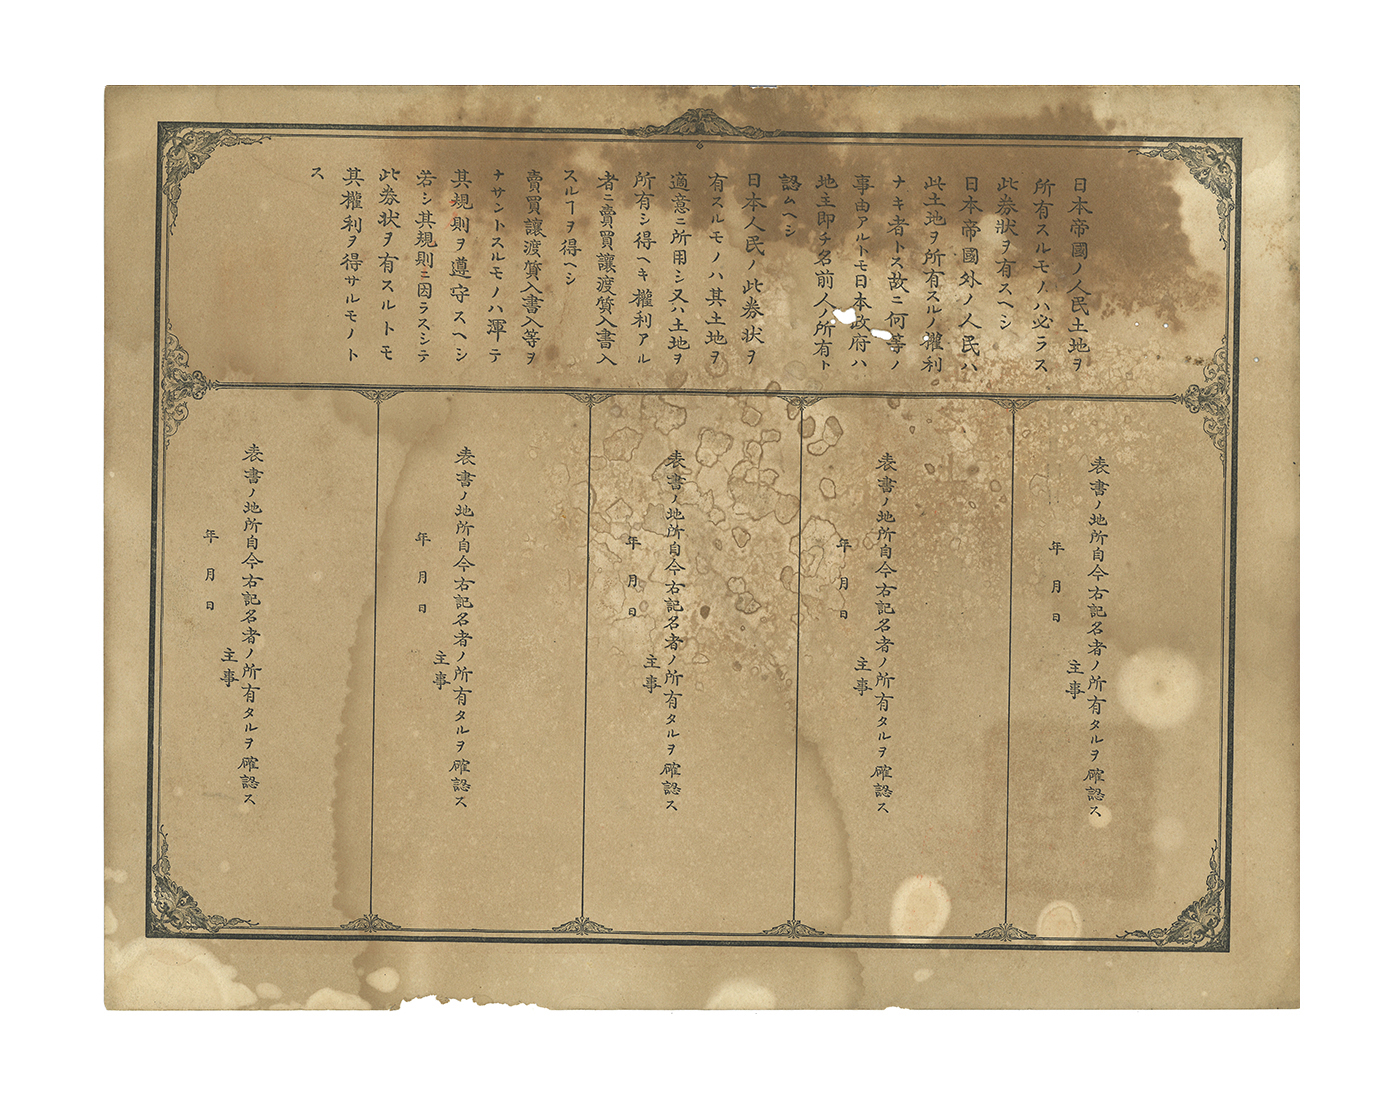 日本帝國ノ人民土地ヲ
所有スルモノハ必ラス
此券狀ヲ有スヘシ
日本帝國外ノ人民ハ
此土地ヲ所有スルノ權利
ナキ者トス故ニ何等ノ
事由アルトモ日本政府ハ
地主即チ名前人ノ所有ト
認ムヘシ
日本人民ノ此券狀ヲ
有スルモノハ其土地ヲ
適意ニ所用シ又ハ土地ヲ
所有シ得ヘキ權利アル
者ニ賣買讓渡質入書入
スルヿヲ得ヘシ
賣買讓渡質入書入等ヲ
ナサントスルモノハ渾テ
其規則ヲ遵守スヘシ
若シ其規則ニ因ラスシテ
此券狀ヲ有スルトモ
其權利ヲ得サルモノト
ス
表書ノ地所自今右記名者ノ所有タルヲ確認ス
年月日
主事
表書ノ地所自今右記名者ノ所有タルヲ確認ス
年月日
主事
表書ノ地所自今右記名者ノ所有タルヲ確認ス
年月日
主事
表書ノ地所自今右記名者ノ所有タルヲ確認ス
年月日
主事
表書ノ地所自今右記名者ノ所有タルヲ確認ス
年月日
主事